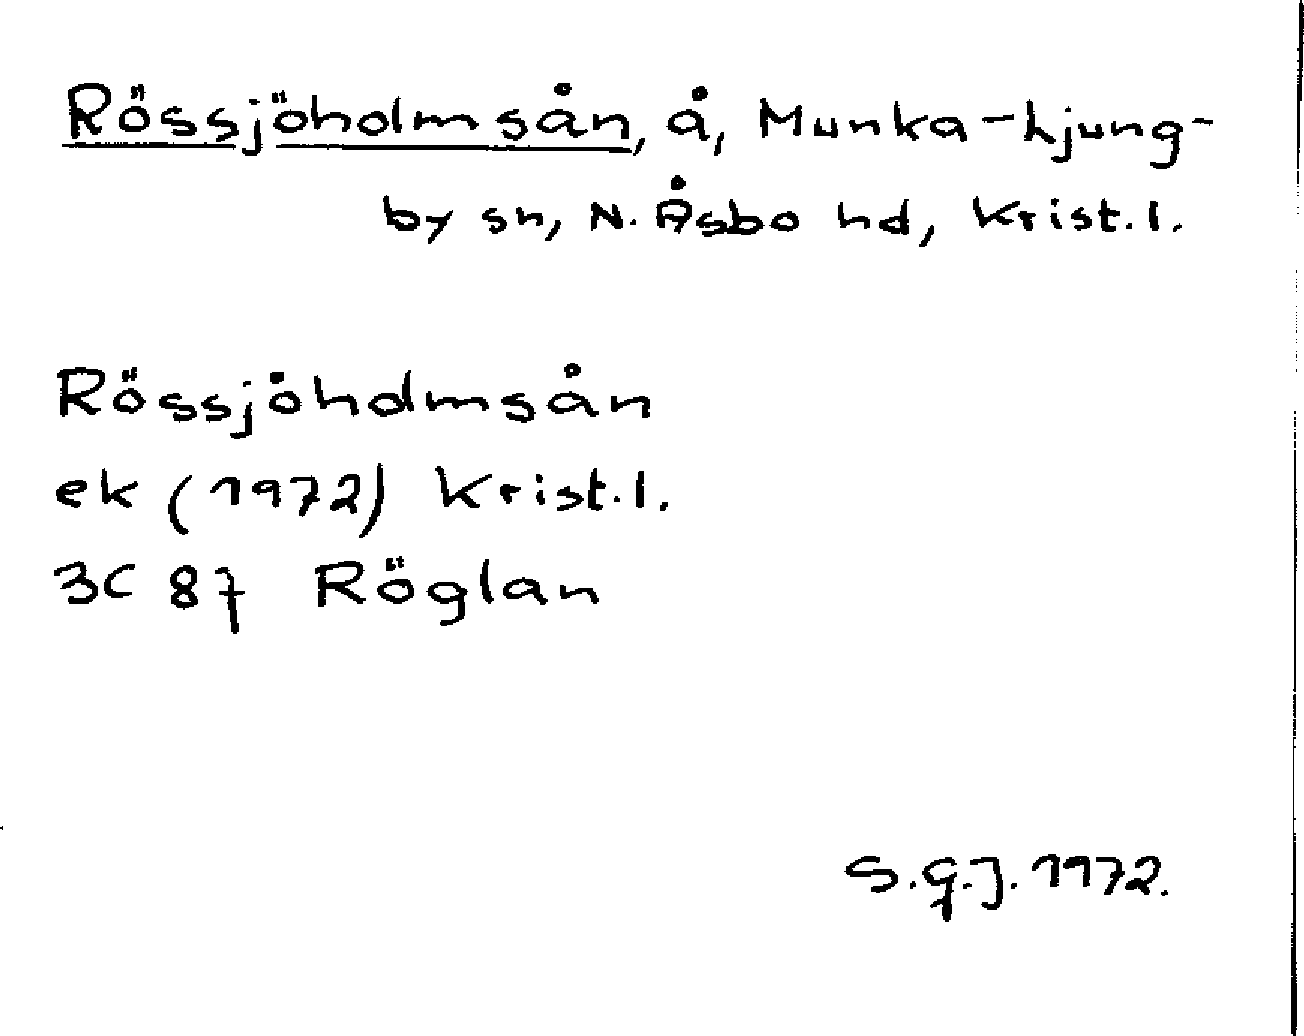 Rössjöholmsån, å, Munka-Ljung-
by sn, N. Åsbo hd, Krist.l.
Rössjöholmsån
ek (1972) Krist.l.
3C 87 Röglan
S.G.J. 1972.